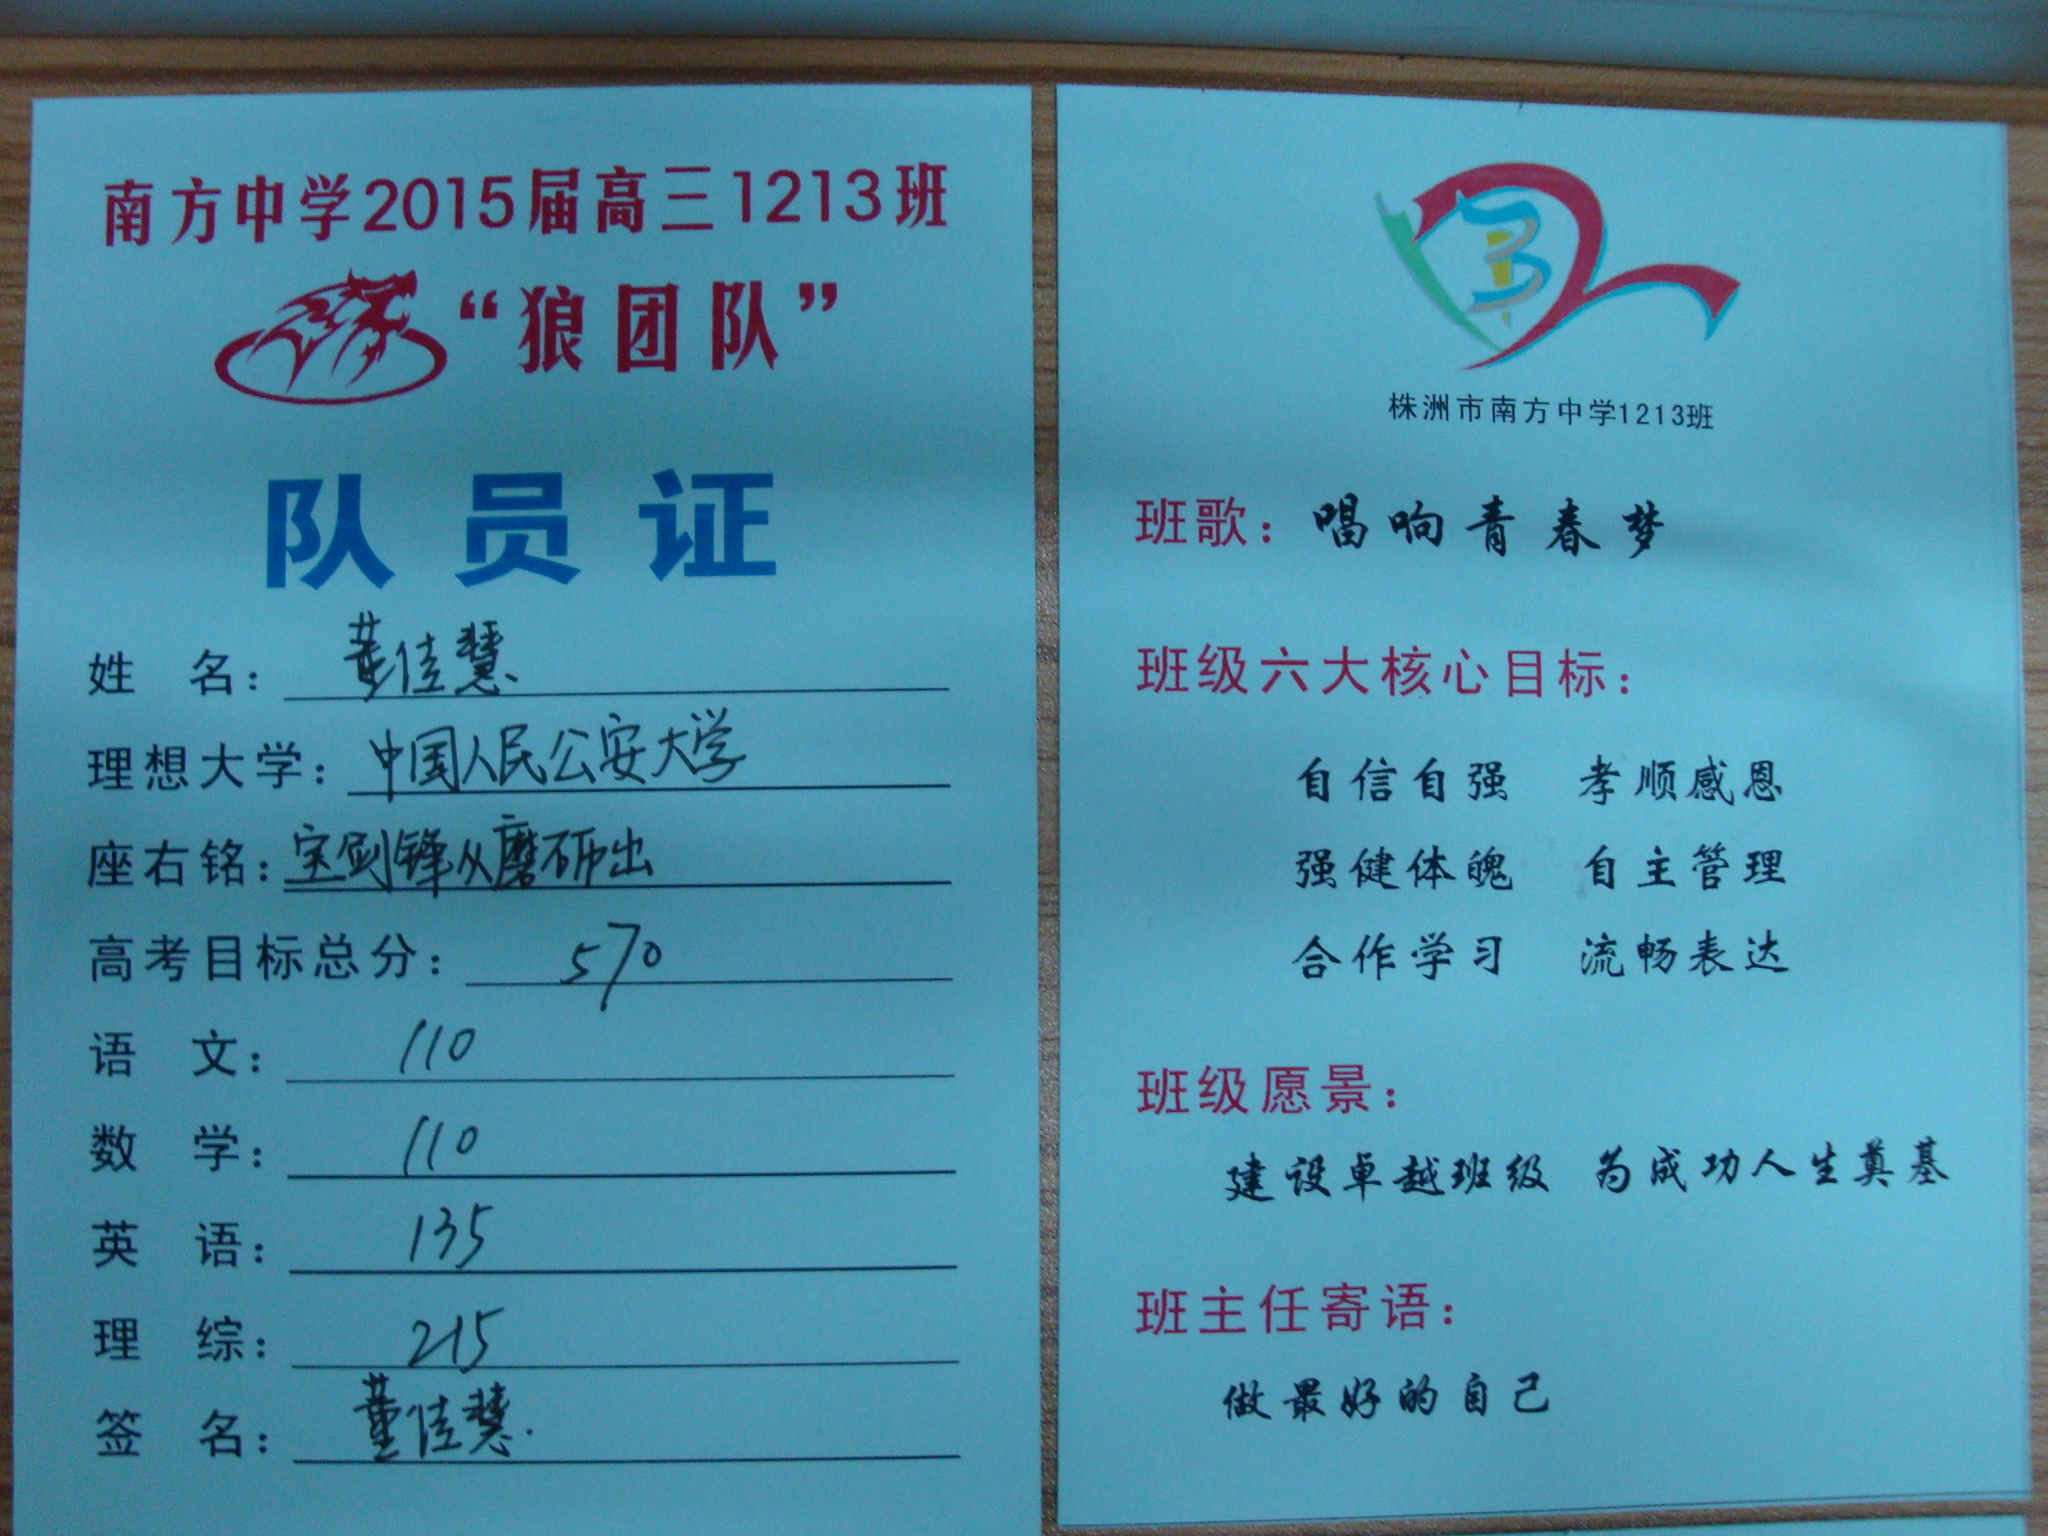 南方中学2015届高三1213班
“狼团队”
队员证
姓名：董佳慧
理想大学：中国人民公安大学
座右铭：宝剑锋从磨砺出
高考目标总分：570
语文：110
数学：110
英语：135
理综：215
签名：董佳慧.
株洲市南方中学1213班
班歌：唱响青春梦
班级六大核心目标：
自信自强 孝顺感恩
强健体魄 自主管理
合作学习 流畅表达
班级愿景：
建设卓越班级 为成功人生奠基
班主任寄语：
做最好的自己